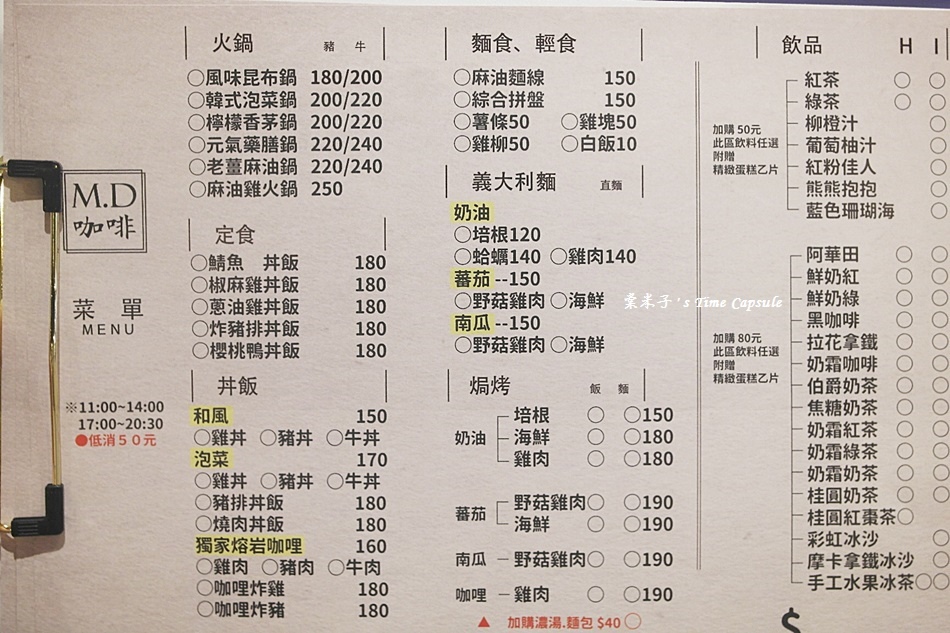 M.D
咖啡
菜 單
MENU
※11:00~14:00
17:00~20:30
●低消50元
火鍋 豬 牛
○風味昆布鍋 180/200
○韓式泡菜鍋 200/220
○檸檬香茅鍋 200/220
○元氣藥膳鍋 220/240
○老薑麻油鍋 220/240
○麻油雞火鍋 250
定食
○鯖魚 丼飯 180
○椒麻雞丼飯 180
○蔥油雞丼飯 180
○炸豬排丼飯 180
○櫻桃鴨丼飯 180
丼飯
和風 150
○雞丼 ○豬丼 ○牛丼
泡菜 170
○雞丼 ○豬丼 ○牛丼
○豬排丼飯 180
○燒肉丼飯 180
獨家熔岩咖哩 160
○雞肉 ○豬肉 ○牛肉
○咖哩炸雞 180
○咖哩炸豬 180
麵食、輕食
○麻油麵線 150
○綜合拼盤 150
○薯條50 ○雞塊50
○雞柳50 ○白飯10
義大利麵 直麵
奶油
○培根120
○蛤蠣140 ○雞肉140
蕃茄--150
○野菇雞肉 ○海鮮
南瓜--150
○野菇雞肉 ○海鮮
焗烤 飯 麵
奶油
培根 ○ ○150
海鮮 ○ ○180
雞肉 ○ ○180
蕃茄
野菇雞肉○ ○190
海鮮 ○ ○190
南瓜 – 野菇雞肉○ ○190
咖哩 – 雞肉 ○ ○190
▲ 加購濃湯.麵包 $40 ○
飲品 H I
加購 50元
此區飲料任選
附贈
精緻蛋糕乙片
紅茶 ○ ○
綠茶 ○ ○
柳橙汁 ○
葡萄柚汁 ○
紅粉佳人 ○
熊熊抱抱 ○
藍色珊瑚海 ○
加購 80元
此區飲料任選
附贈
精緻蛋糕乙片
阿華田 ○ ○
鮮奶紅 ○ ○
鮮奶綠 ○ ○
黑咖啡 ○ ○
拉花拿鐵 ○ ○
奶霜咖啡 ○ ○
伯爵奶茶 ○ ○
焦糖奶茶 ○ ○
奶霜紅茶 ○ ○
奶霜綠茶 ○ ○
奶霜奶茶 ○ ○
桂圓奶茶 ○ ○
桂圓紅棗茶○
彩虹冰沙 ○
摩卡拿鐵冰沙 ○
手工水果冰茶○○
栗米子 's Time Capsule
$